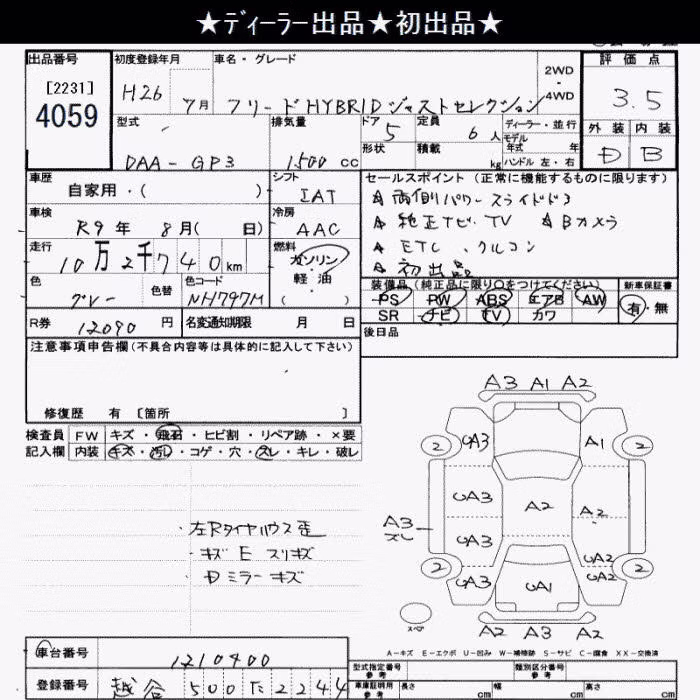 ★ディーラー出品★初出品★
出品番号
[2231]
4059
初度登録年月
H26 7月
車名・グレード
フリードHYBRIDジャストセレクション
2WD
4WD
評価点
3.5
外装 内装
D B
型式
DAA-GP3
排気量
1500 cc
ドア
5
形状
定員
6 人
積載
kg
ディーラー・並行
モデル
年式 年
ハンドル 左・右
車歴
自家用・( )
シフト
IAT
車検
R9 年 8 月( 日)
冷房
AAC
走行
10万2千740km
燃料
ガソリン
軽油
色
グレー
色替
色コード
NH797M
R券
12090 円
名変通知期限 月 日
セールスポイント (正常に機能するものに限ります)
☆両側パワースライドドア
☆純正ナビ、TV ☆Bカメラ
☆ETC、クルコン
☆初出品
装備品(純正品に限り○をつけてください)
PS PW ABS エアB AW
SR ナビ TV カワ
新車保証書
有・無
後日品
注意事項申告欄(不具合内容等は具体的に記入して下さい)
修復歴 有 [箇所 ]
検査員
記入欄
FW キズ・飛石・ヒビ割・リペア跡・×要
内装 キズ・汚れ・コゲ・穴・スレ・キレ・破レ
・左Rタイヤハウス歪
・キズ E スリキズ
・Dミラーキズ
A3 A1 A2
2 UA3 A1 2
UA3 A2 A2
A3
ズレ
UA3 UA2
2 UA3 UA1 UA2 2
スペア
A2 A3 A2
A-キズ E-エクボ U-凹み W-補修跡 S-サビ C-腐食 XX-交換済
車台番号
1210400
登録番号
越谷 500 た 2244
型式指定番号
参考
類別区分番号
参考
車庫証明用
参考
長さ cm
幅 cm
高さ cm